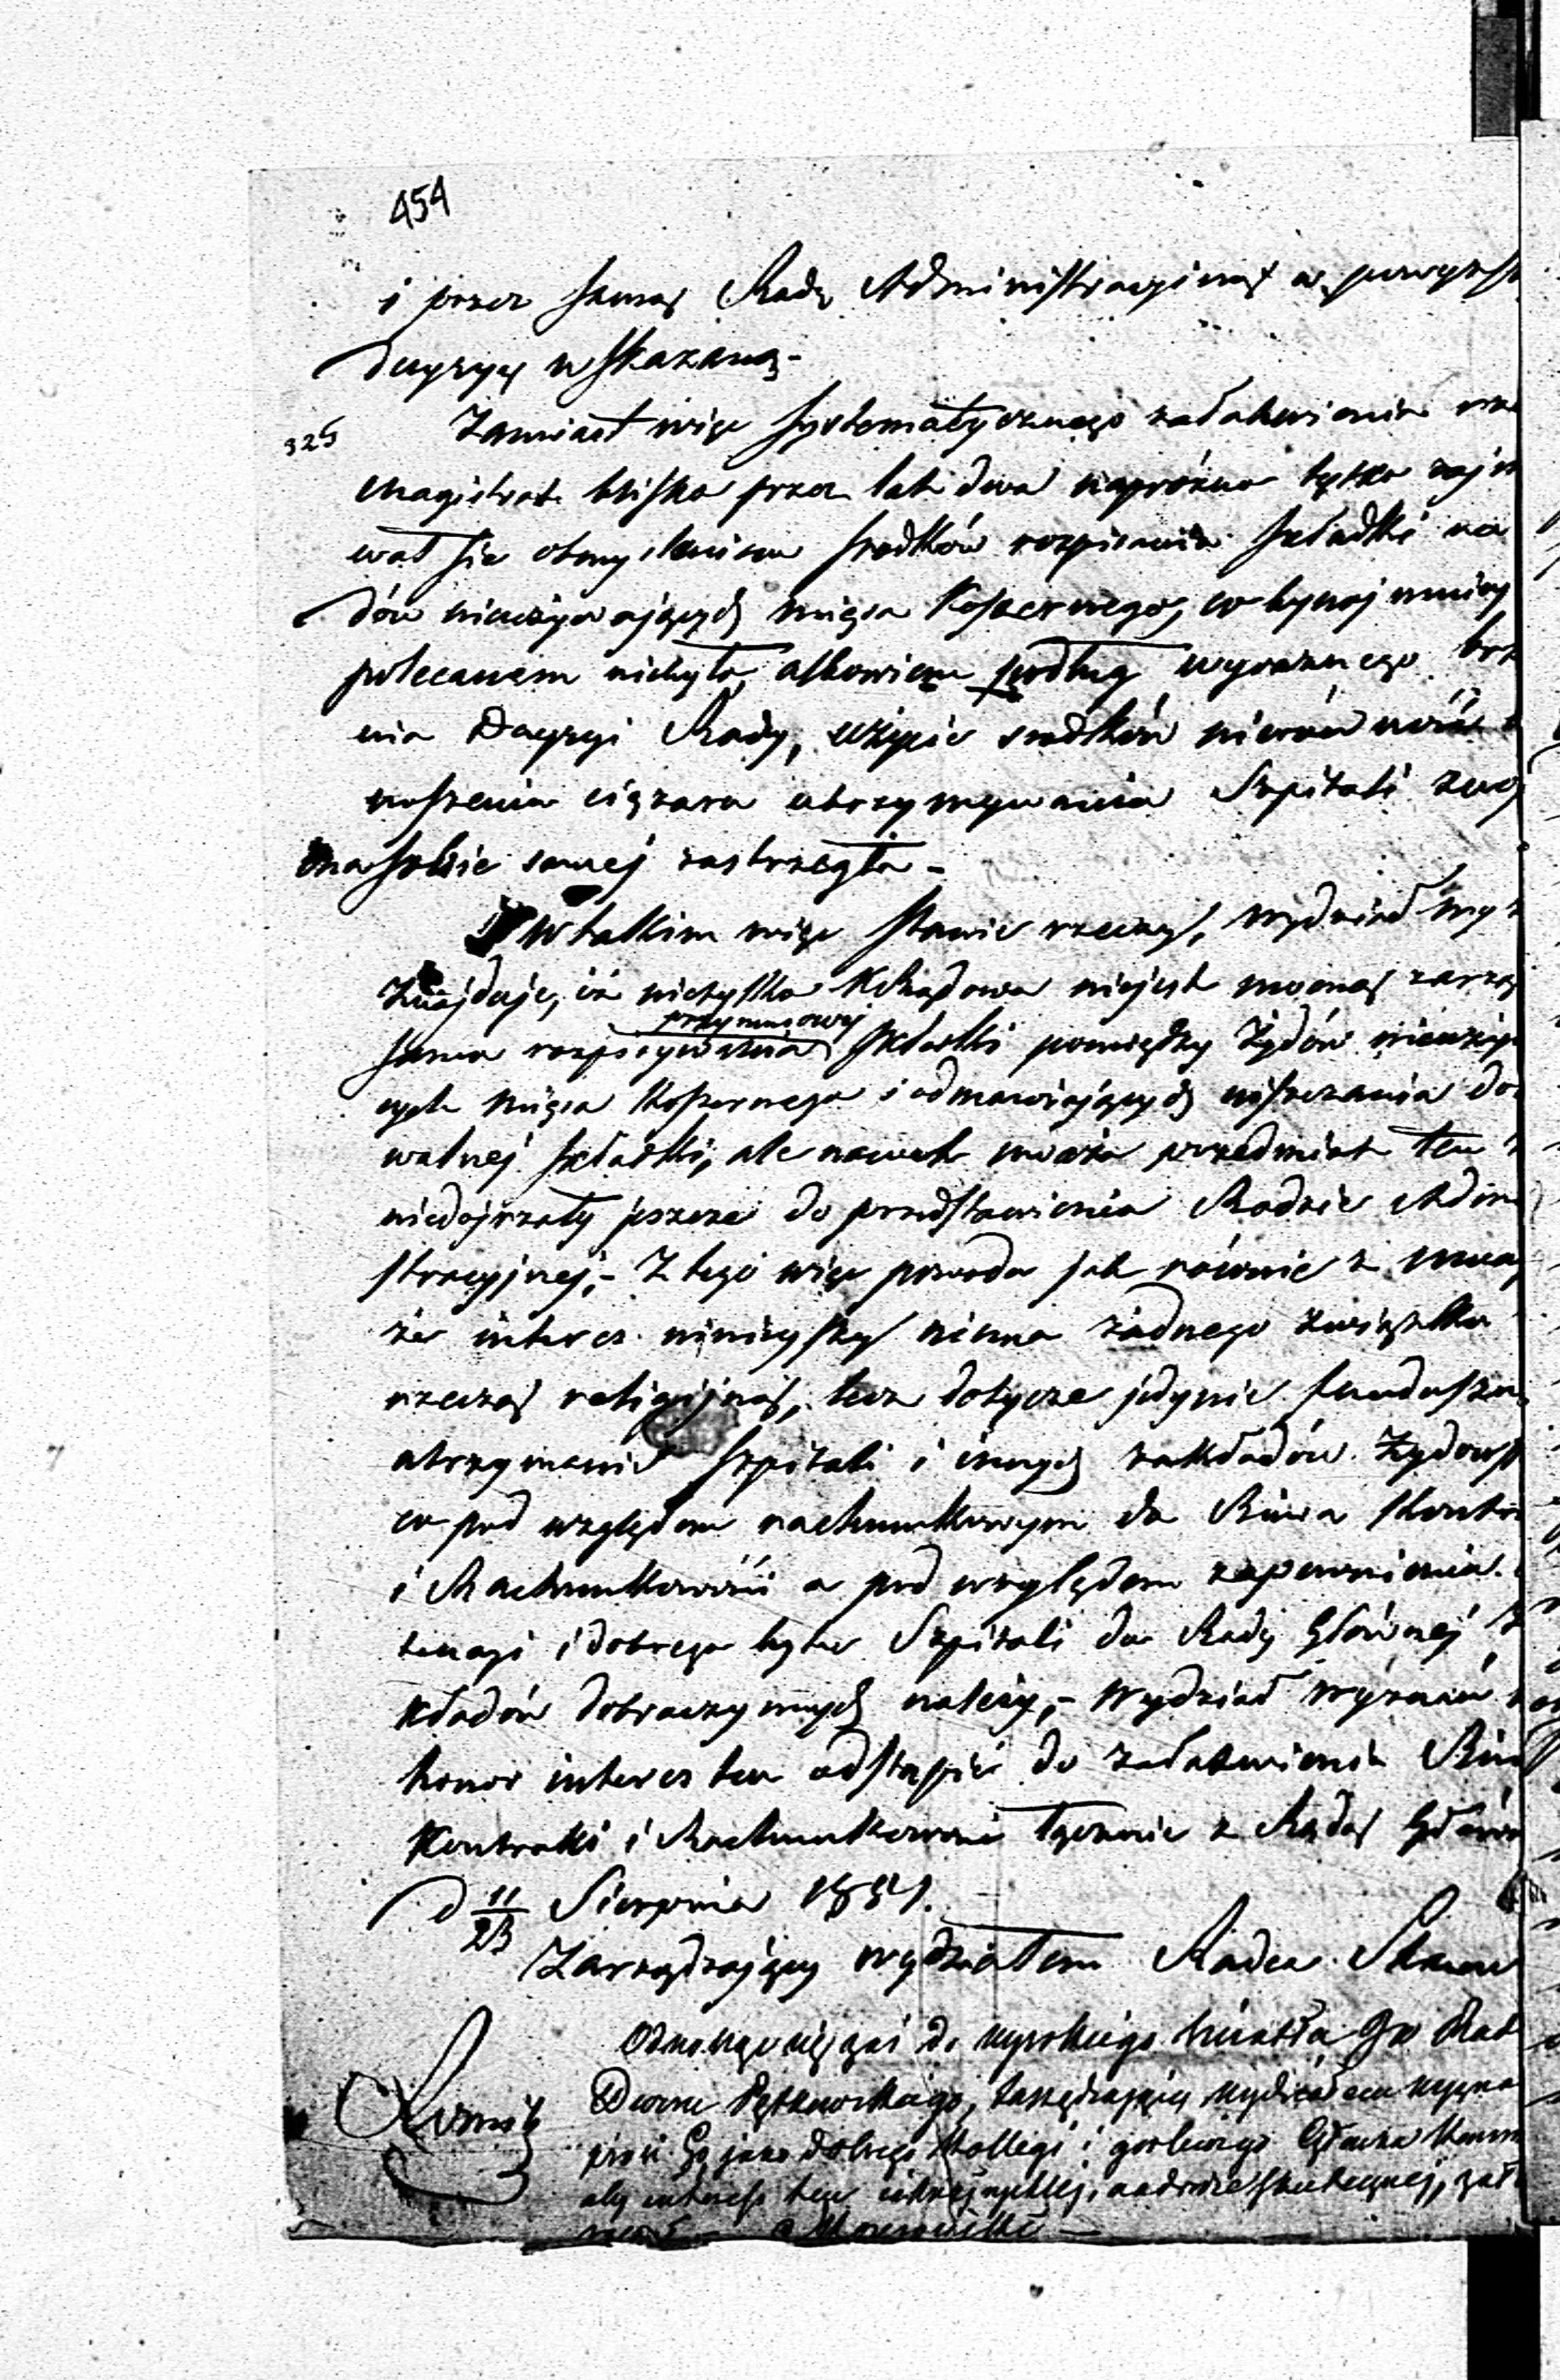 454
i przez samą Radę Administracyjną w powyższ
decyzyą wskazaną.-
325
Zamiast więc systematycznego załatwienia
Magistrat blisko przez lat dwa napróżno tylko zajm
wał się obmyśleniem srodków rozpisania składki na
dów nieużywających mięsa Koszernego, co bynajmniej
polecanem niebyło, albowiem podług wyraźnego brz
nia Decyzyi Rady, użycie srodków
noszenia ciężaru utrzymywania Szpitali
ona sobie samej zastrzegła -
W takim więc stanie rzeczy, Wydział Wyz
Znajduje, iż nietylko Rządowa niejest mocną zarzą
przymusowej
sama rozpisywania składki pomiędzy Żydów nieużyw
cych mięsa Koszernego i odmawiających uiszczania do
wolnej składki, ale nawet uważa przedmiot ten
niedojrzały jeszcze do przedstawienia Radzie Admi
stracyjnej,- Z tego więc powodu jak równie z uwa
że interes niniejszy niema żadnego związku
rzeczą religijną, lecz dotycze jedynie funduszu
utrzymanie Szpitali i innych zakładów Żydows
co pod względem rachunkowym do Biura Kontro
i Rachunkowości a pod względem zapewnienia
i dobrego bytu Szpitali do Rady Głównej Z
kładów dobroczynnych należy,- Wydział Wyznań
honor interes ten odstąpić do załatwienia Biu
Kontroli i Rachunkowości łącznie z Radą Główn
d 11/23 Sierpnia 1851.
Zarządzający wydziałem Radca Stanu
Odnosząc się zaś do wysokiego światła Rad
Dworu, Zarządzający Wydziałem Wyzna
prosi Go jako dobrego Kollegi i gorliwego Członka Komm
aby interess ten, nadewszystko skuteczniej, zał